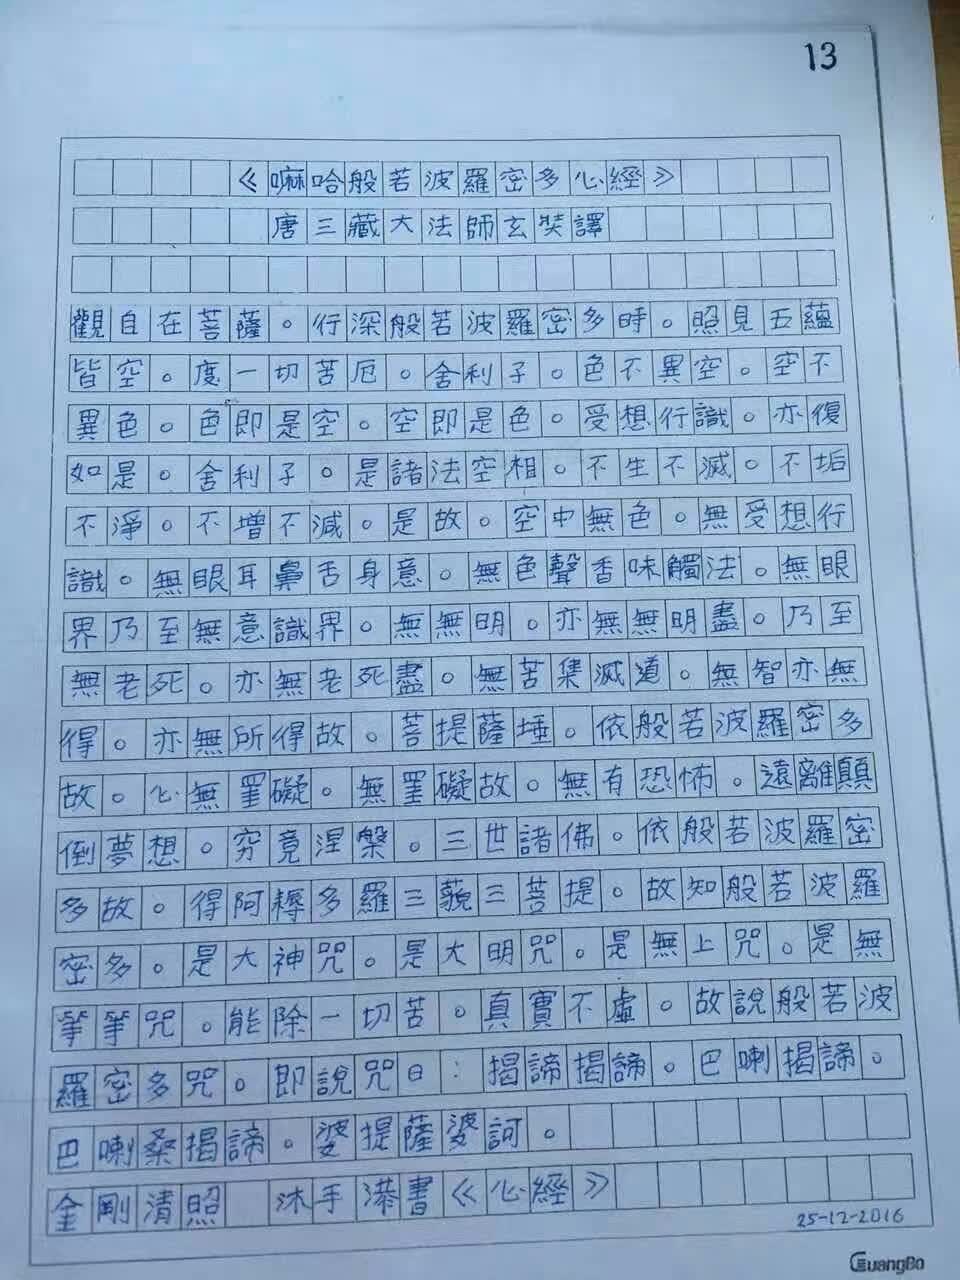 13
《嘛哈般若波羅密多心經》
唐三藏大法師玄奘譯
觀自在菩薩。行深般若波羅密多時。照見五蘊
皆空。度一切苦厄。舍利子。色不異空。空不
異色。色即是空。空即是色。受想行識。亦復
如是。舍利子。是諸法空相。不生不滅。不垢
不淨。不增不減。是故。空中無色。無受想行
識。無眼耳鼻舌身意。無色聲香味觸法。無眼
界乃至無意識界。無無明。亦無無明盡。乃至
無老死。亦無老死盡。無苦集滅道。無智亦無
得。亦無所得故。菩提薩埵。依般若波羅密多
故。心無罣礙。無罣礙故。無有恐怖。遠離顛
倒夢想。究竟涅槃。三世諸佛。依般若波羅密
多故。得阿耨多羅三藐三菩提。故知般若波羅
密多。是大神咒。是大明咒。是無上咒。是無
等等咒。能除一切苦。真實不虛。故說般若波
羅密多咒。即說咒曰：揭諦揭諦。巴喇揭諦。
巴喇桑揭諦。婆提薩婆訶。
金剛清照 沐手恭書《心經》
25-12-2016
GuangBo